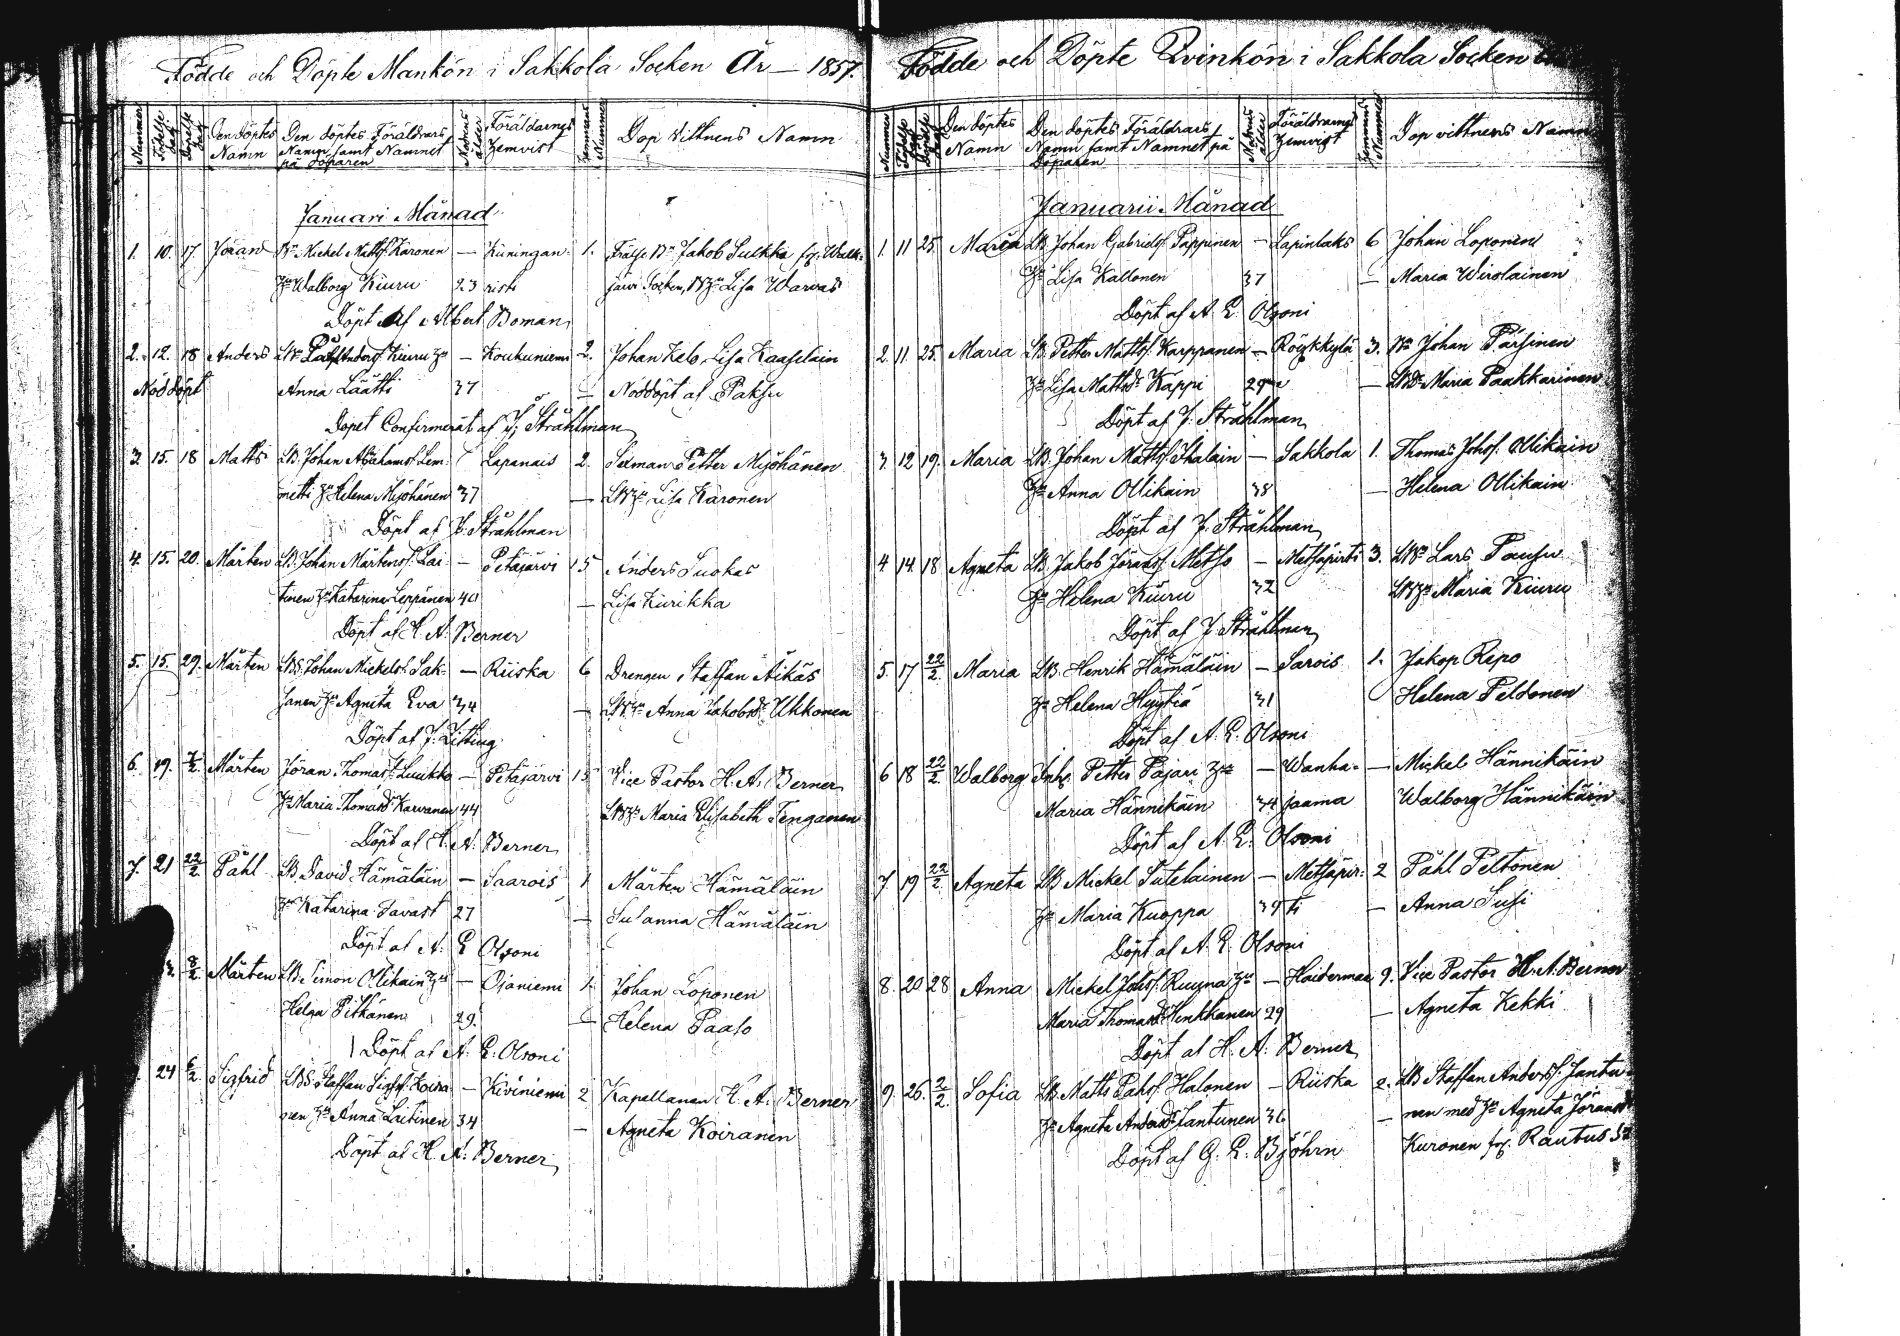 Födde och Döpte Mankön i Sakkola Socken År — 1857.
Nummer Födelse dag Döpelse dag Den döptes Namn Den döptes Föräldrars Namn samt Namnet på Döparen Modrens ålder Föräldarnes Hemvist Hemmans Nummer Dop vittnens Namn
Januari Månad
1. 10. 17. Jöran Bn Mickel Matts. Karonen — Kuningan- 1. Frälse Bn Jakob Suikka fr. Walk-
Hu Walborg Kiuru 23 risti järvi Socken, Bhu Lisa Warvas
Döpt af Albert Boman
2. 12. 18 Anders Påhl Anders. Kiuru Hu — Koukuniemi 2. Johan Keb. Lisa Kaaselain
Nöddöpt Anna Läätti 37 — Nöddöpt af Paksu
Döpet Confirmerat af J. Stråhlman
3. 15. 18 Matts LB. Johan Abrahams. Lem- Lapanais 2. Sexman Petter Mijöhänen
metti Hu Helena Mijöhänen 37 — LBHu Lisa Karonen
Döpt af J. Stråhlman
4. 15. 20. Mårten LB. Johan Mårtens. Lai- — Petäjärvi 15 Anders Suokas
tinen Hu Katarina Leppänen 40 — Lisa Kurikka
Döpt af H. A. Berner
5. 15. 29. Mårten LBS. Johan Mickels. Sak- — Riiska 6 Drengen Staffan Äikäs
sanen Hu Agneta Eva 34 — Anna Jakobsd. Ukkonen
Döpt af J. Litting
6. 19. 2. Mårten Jöran Thomas. Luukko — Petäjärvi 15 Vice Pastor H. A. Berner
Hu Maria Thomasd. Karvanen 44 LBHu Maria Elisabeth Tenganen
Döpt af H. A. Berner
7. 21 22/2. Påhl LB. David Hämäläin — Saarois 1 Mårten Hämäläin
Hu Katarina Savast 27 — Susanna Hämäläin
Döpt af A. E Olsoni
8/2. Mårten LB. Simon Ollikain Hu — Ojaniemi 1. Johan Loponen
Helga Pitkänen 29. — Helena Paaso
Döpt af A. E. Olsoni
24 6/2 Sigfrid LBS. Staffan Sigfr. Koira- — Kiviniemi 2 Kapellanen H. A. Berner
nen Hu Anna Laitinen 34 — Agneta Koiranen
Döpt af H. A. Berner
Födde och Döpte Qvinkön i Sakkola Socken
Nummer Födelse dag Döpelse dag Den döptes Namn Den döptes Föräldrars Namn samt Namnet på Döparen Modrens ålder Föräldrarnes Hemvist Hemmans Nummer Dop vittnens Namn
Januarii Månad
1. 11 25. Maria LB. Johan Gabriels. Pappinen — Lapinlaks 6 Johan Loponen
Hu Lisa Kallonen 37 — Maria Wirolainen
Döpt af A. E. Olsoni
2. 11. 25. Maria LB. Petter Matts. Karppanen — Röykkylä 3. Bn Johan Pärsinen
Hu Lisa Mattsd. Kappi 29 — Maria Paakkarinen
Döpt af J. Stråhlman
3. 12 19. Maria LB. Johan Matts. Ihalain — Sakkola 1. Thomas Johs. Ollikain
Hu Anna Ollikain 38 — Helena Ollikain
Döpt af J. Stråhlman
4 14 18 Agneta LB. Jakob Jörans. Metso — Metsäpirti 3. Lars Pausu
Hu Helena Kiuru 32 LBHu Maria Kiuru
Döpt af J. Stråhlman
5. 17 22/2. Maria LB. Henrik Hämäläin — Sarois 1. Jakop Repo
Hu Helena Hyytiä 31 Helena Peldonen
Döpt af A. E. Olsoni
6 18 22/2 Walborg Inh. Petter Pajari Hu — Wanha- — Mickel Hännikäin
Maria Hännikäin 34 jaama Walborg Hännikäin
Döpt af A. E. Olsoni
7 19 22/2. Agneta LB Mickel Sutelainen — Metsäpir- 2 Påhl Peltonen
Hu Maria Kuoppa 39 ti — Anna Susi
Döpt af A. E. Olsoni
8. 20 28 Anna Mickel Johs. Ruuna Hu — Haiderman 9. Vice Pastor H. A. Berner
Maria Thomasd. Henkkanen 29 — Agneta Kekki
Döpt af H. A. Berner
9. 26. 2/2. Sofia LB. Matts Påhls. Halonen — Riiska 2. LB Staffan Anders. Jantu-
Hu Agneta Andersd. Jantunen 36 — nen med Hu Agneta Jöransd.
Döpt af G. E. Björn Kuronen fr. Rautus